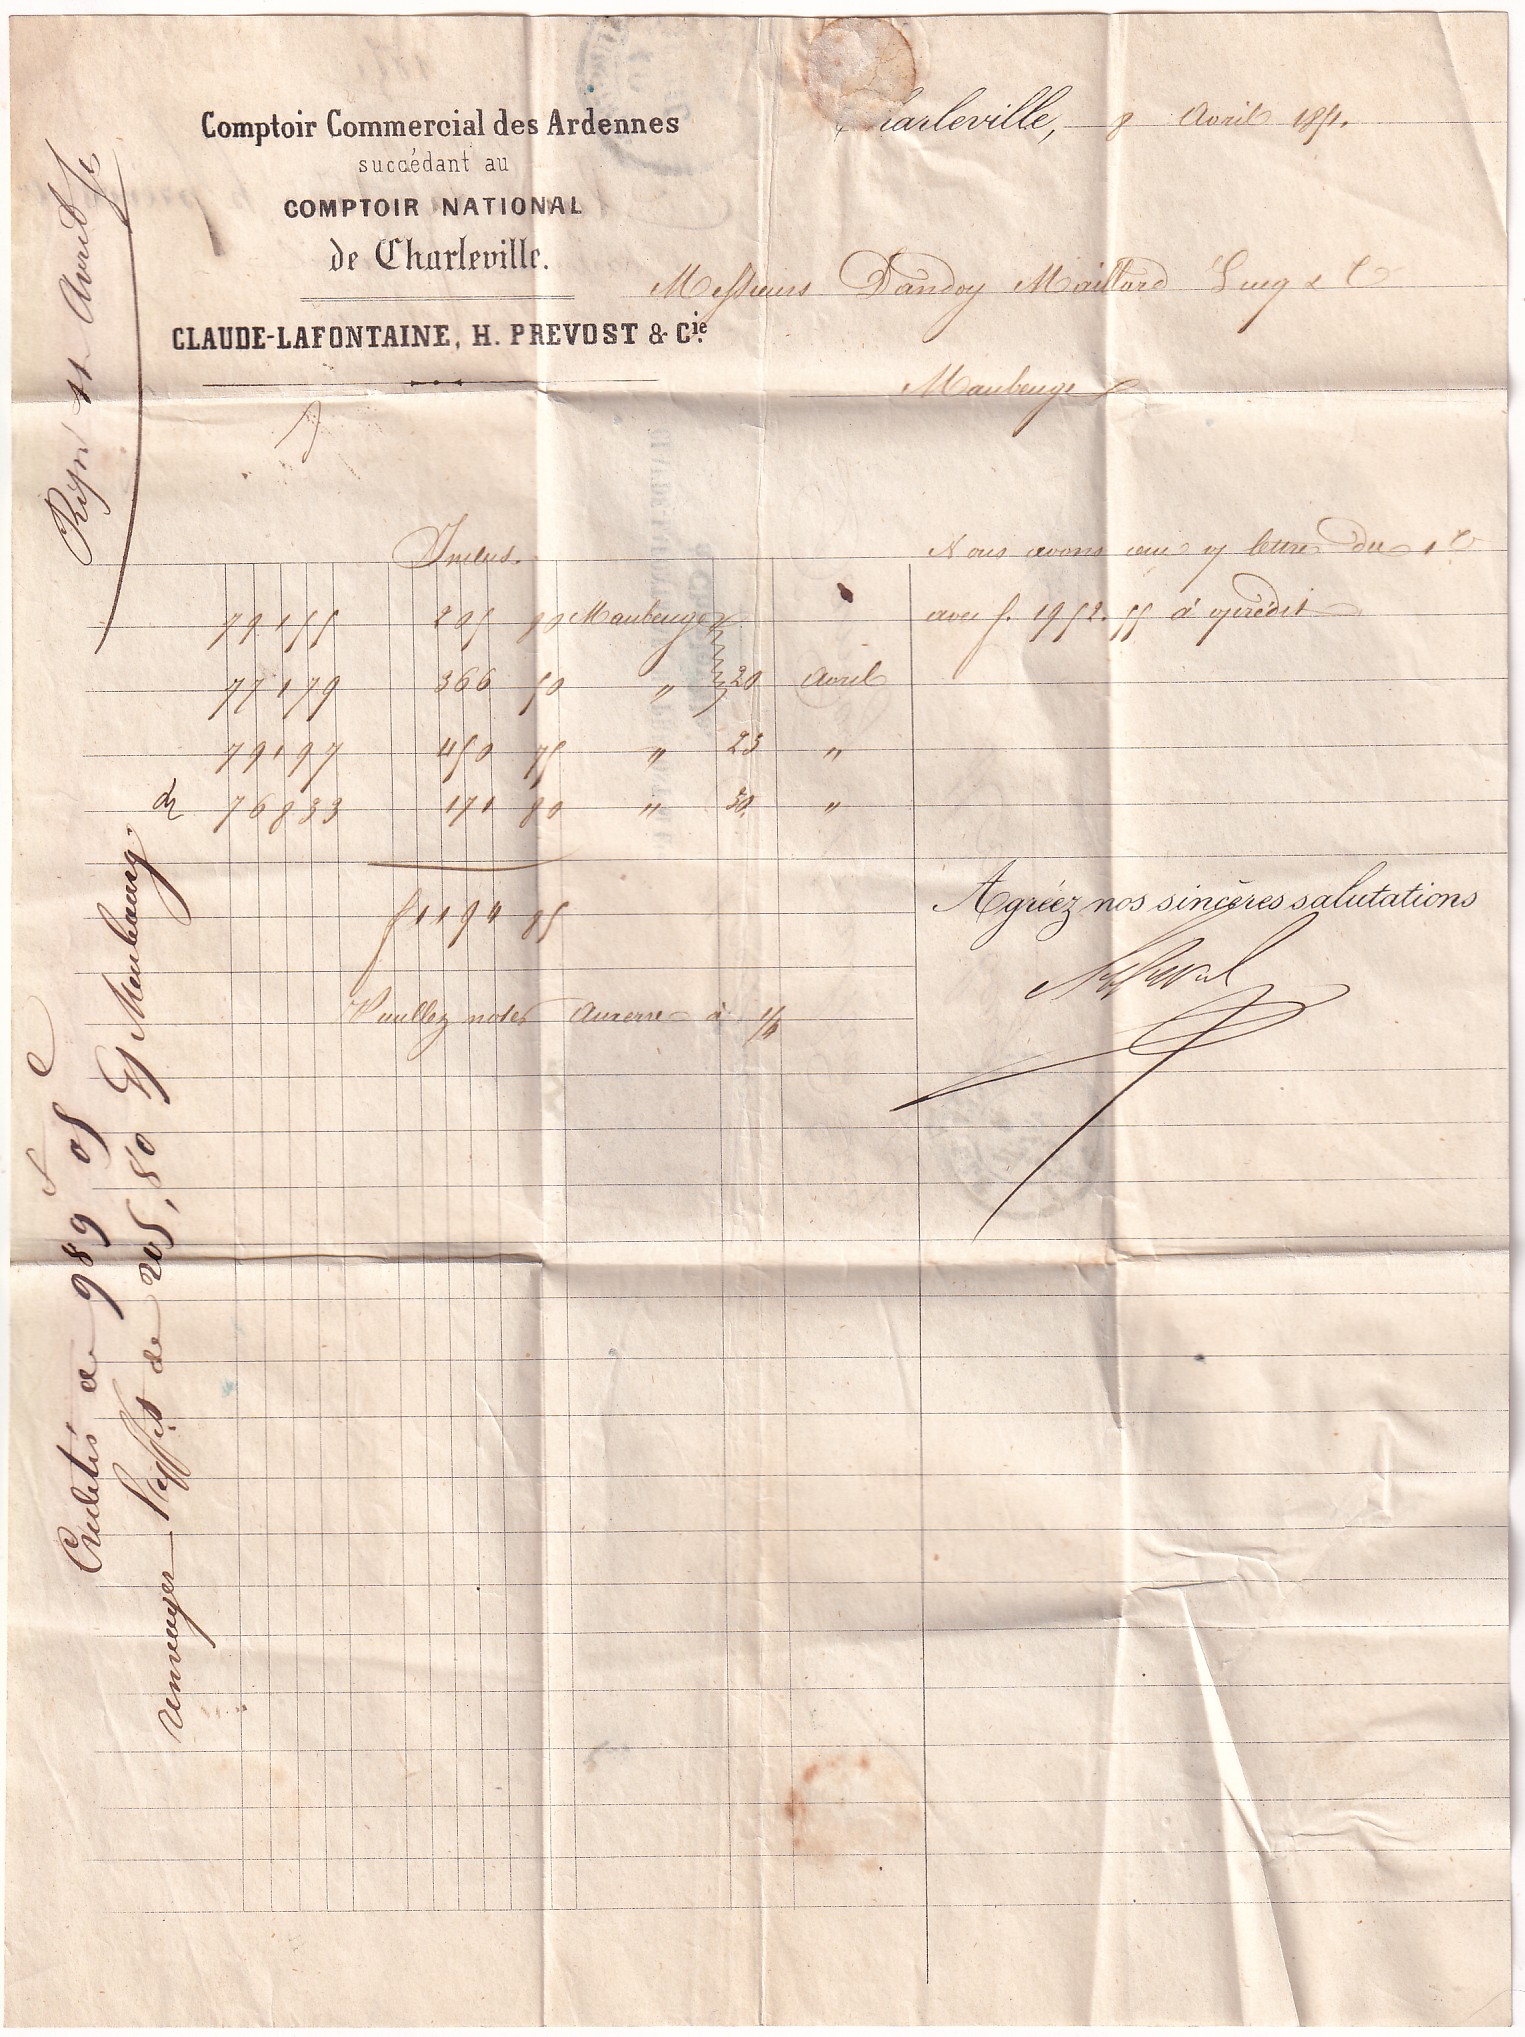 Comptoir Commercial des Ardennes
succédant au
COMPTOIR NATIONAL
de Charleville.
CLAUDE-LAFONTAINE, H. PREVOST & Cie.
Charleville, 8 Avril 1851.
Messieurs Dandoy Maillard Lucq & Cie
Maubeuge
Nous avons reçu v/ lettre du
avec f. 1952.55 à v/crédit
Inclus.
79155 205 80 Maubeuge
77179 366 50 " 20 Avril
79197 450 75 " 23 "
76833 171 80 " 30 "
f 1194 85
Veuillez noter Auxerre à 1/4
Agréez nos sincères salutations
Rép. 11 Avril
Crédités de 989 05
de 205,80 Maubeuge